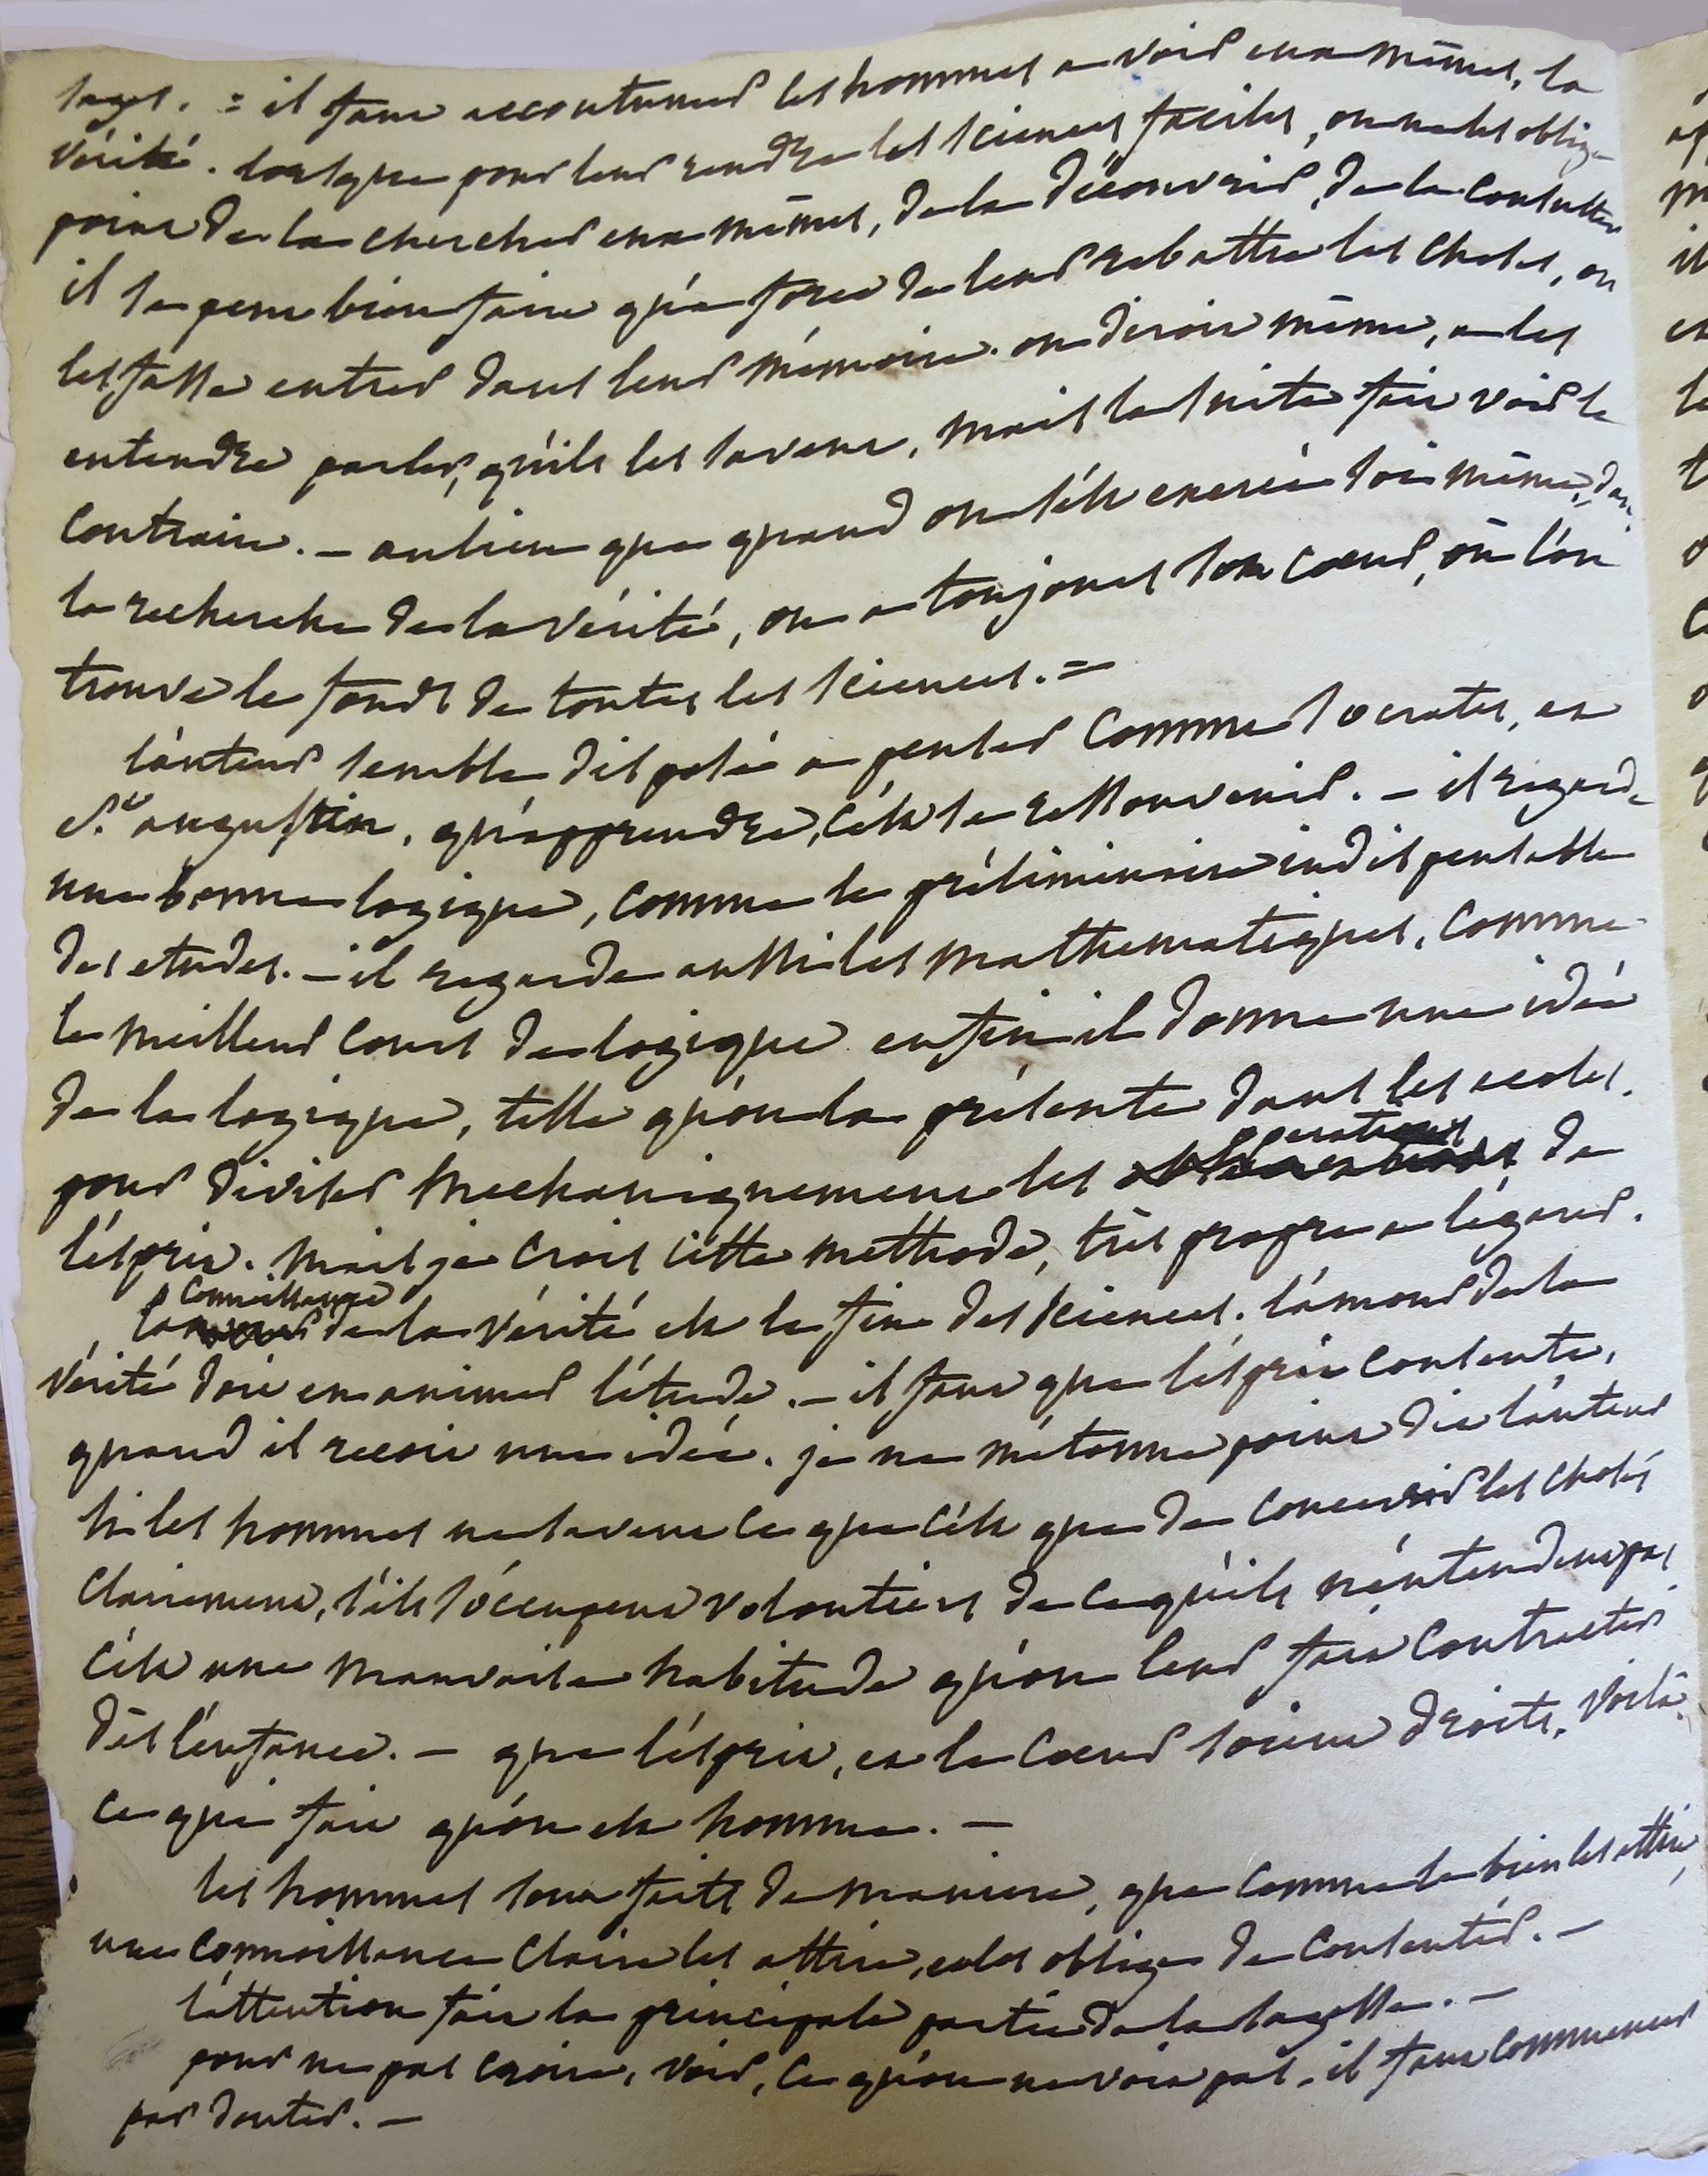 sages. = il faut accoutumer les hommes a voir eux mêmes, la
vérité. lorsque pour leur rendre les sciences faciles, on ne les oblige
point de la chercher eux mêmes, de la découvrir, de la consulter
il se peut bien faire qu'a force de leur rebattre les choses, on
les fasse entrer dans leur mémoire. on diroit même, a les
entendre parler, qu'ils les savent, mais la suite fait voir le
contraire. – au lieu que quand on s'est exercé soi même, dans
la recherche de la vérité, on a toujours son cœur, où l'on
trouve le fonds de toutes les sciences. =
l'auteur semble disposé a penser comme socrates, et
St. augustin, qu'apprendre, c'est se ressouvenir. – il regarde
une bonne logique, comme le préliminaire indispensable
des etudes. – il regarde aussi les mathematiques, comme
le meilleur cours de logique enfin il donne une idée
de la logique, telle qu'on la présente dans les ecoles.
pour diviser mechaniquement les operations de
l'esprit. mais je crois cette methode, très propre a l'égard.
la connoissance de la vérité est la fin des sciences. l'amour de la
vérité doit en animer l'étude. – il faut que l'esprit consente,
quand il recoit une idée. je ne m'étonne point dit l'auteur
si les hommes ne savent ce que c'est que de concevoir les choses
clairement, s'ils s'occupent volontiers de ce qu'ils n'entendent pas
c'est une mauvaise habitude qu'on leur fait contracter
dès l'enfance. – que l'esprit, et le cœur soient droits, voilà
ce qui fait qu'on est homme. –
les hommes sont faits de maniere, que comme le bien les attire,
une connoissance claire les attire, et les oblige de consentir. –
l'attention fait la principale partie de la sagesse. –
pour ne pas croire, voir, ce qu'on ne voit pas, il faut commencer
par douter. –